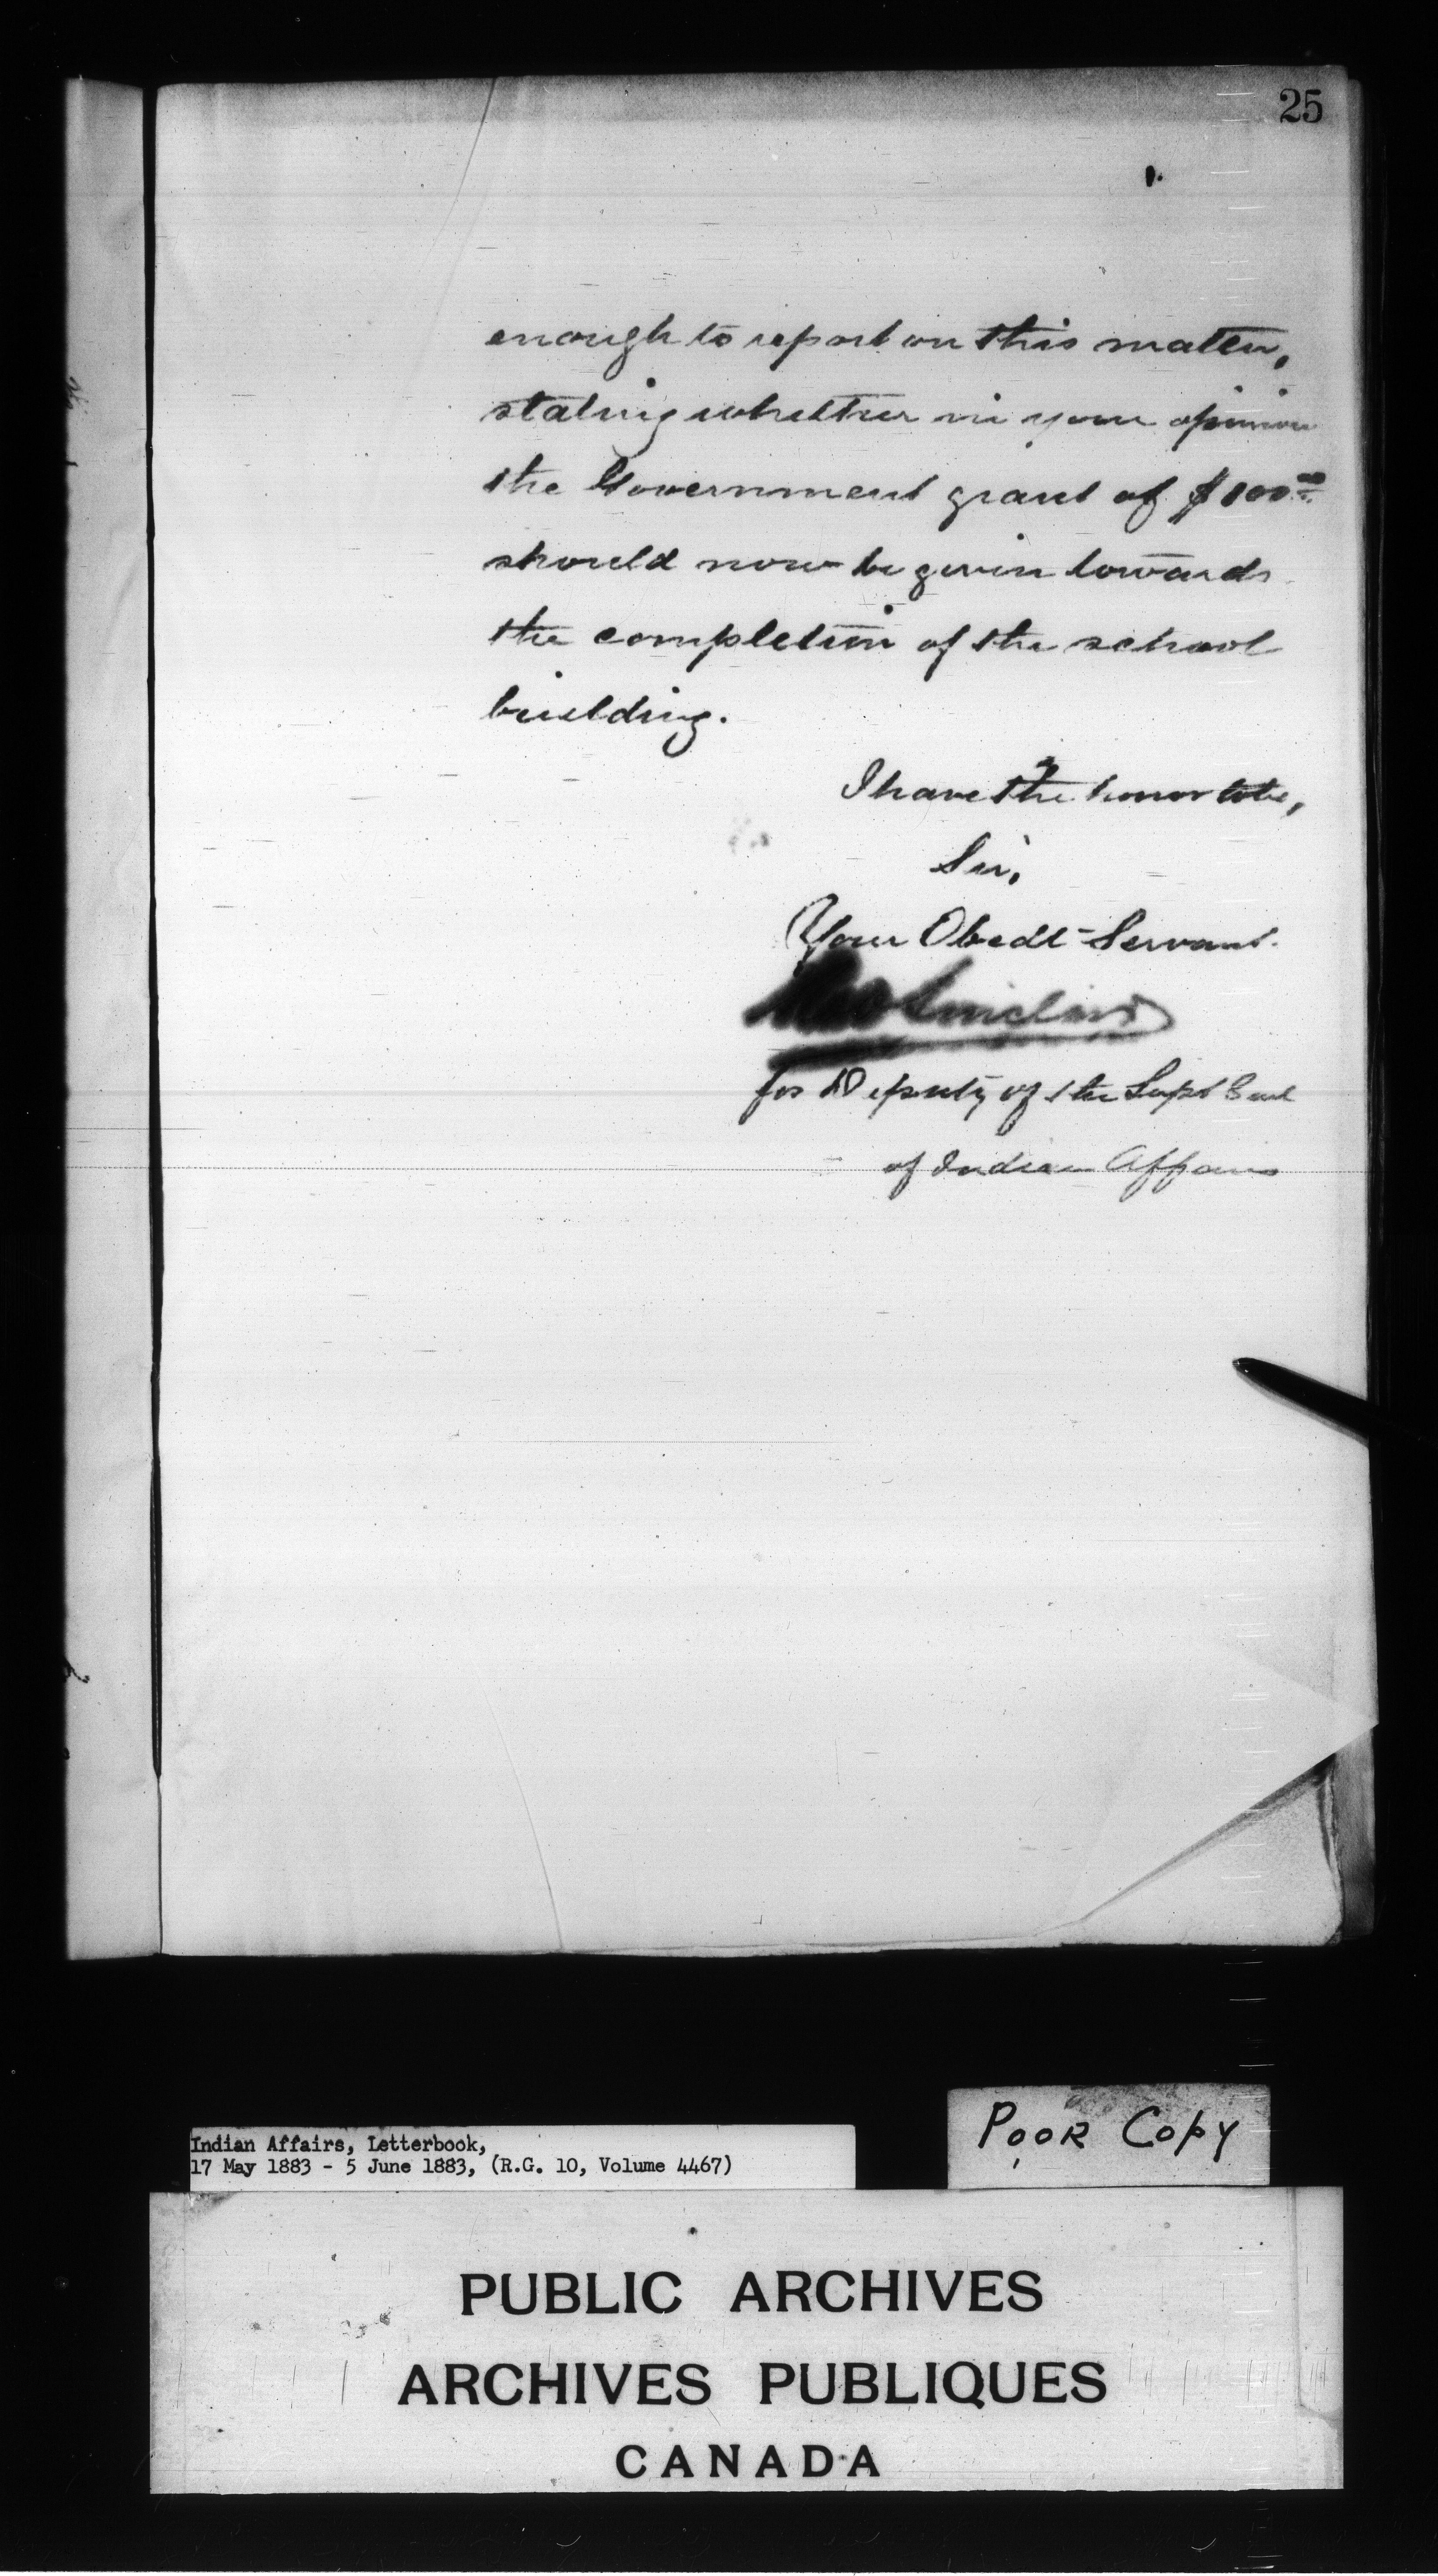 25
enough to report on this matter,
stating whether in your opinion
the Government grant of $100.00
should now be given towards
the completion of the school
building.
I have the honor to be,
Sir,
Your Obedt Servant.
Sinclair
for Deputy of the Supt Genl
of Indian Affairs
Indian Affairs, Letterbook,
17 May 1883 - 5 June 1883, (R.G. 10, Volume 4467)
POOR COPY
PUBLIC ARCHIVES
ARCHIVES PUBLIQUES
CANADA